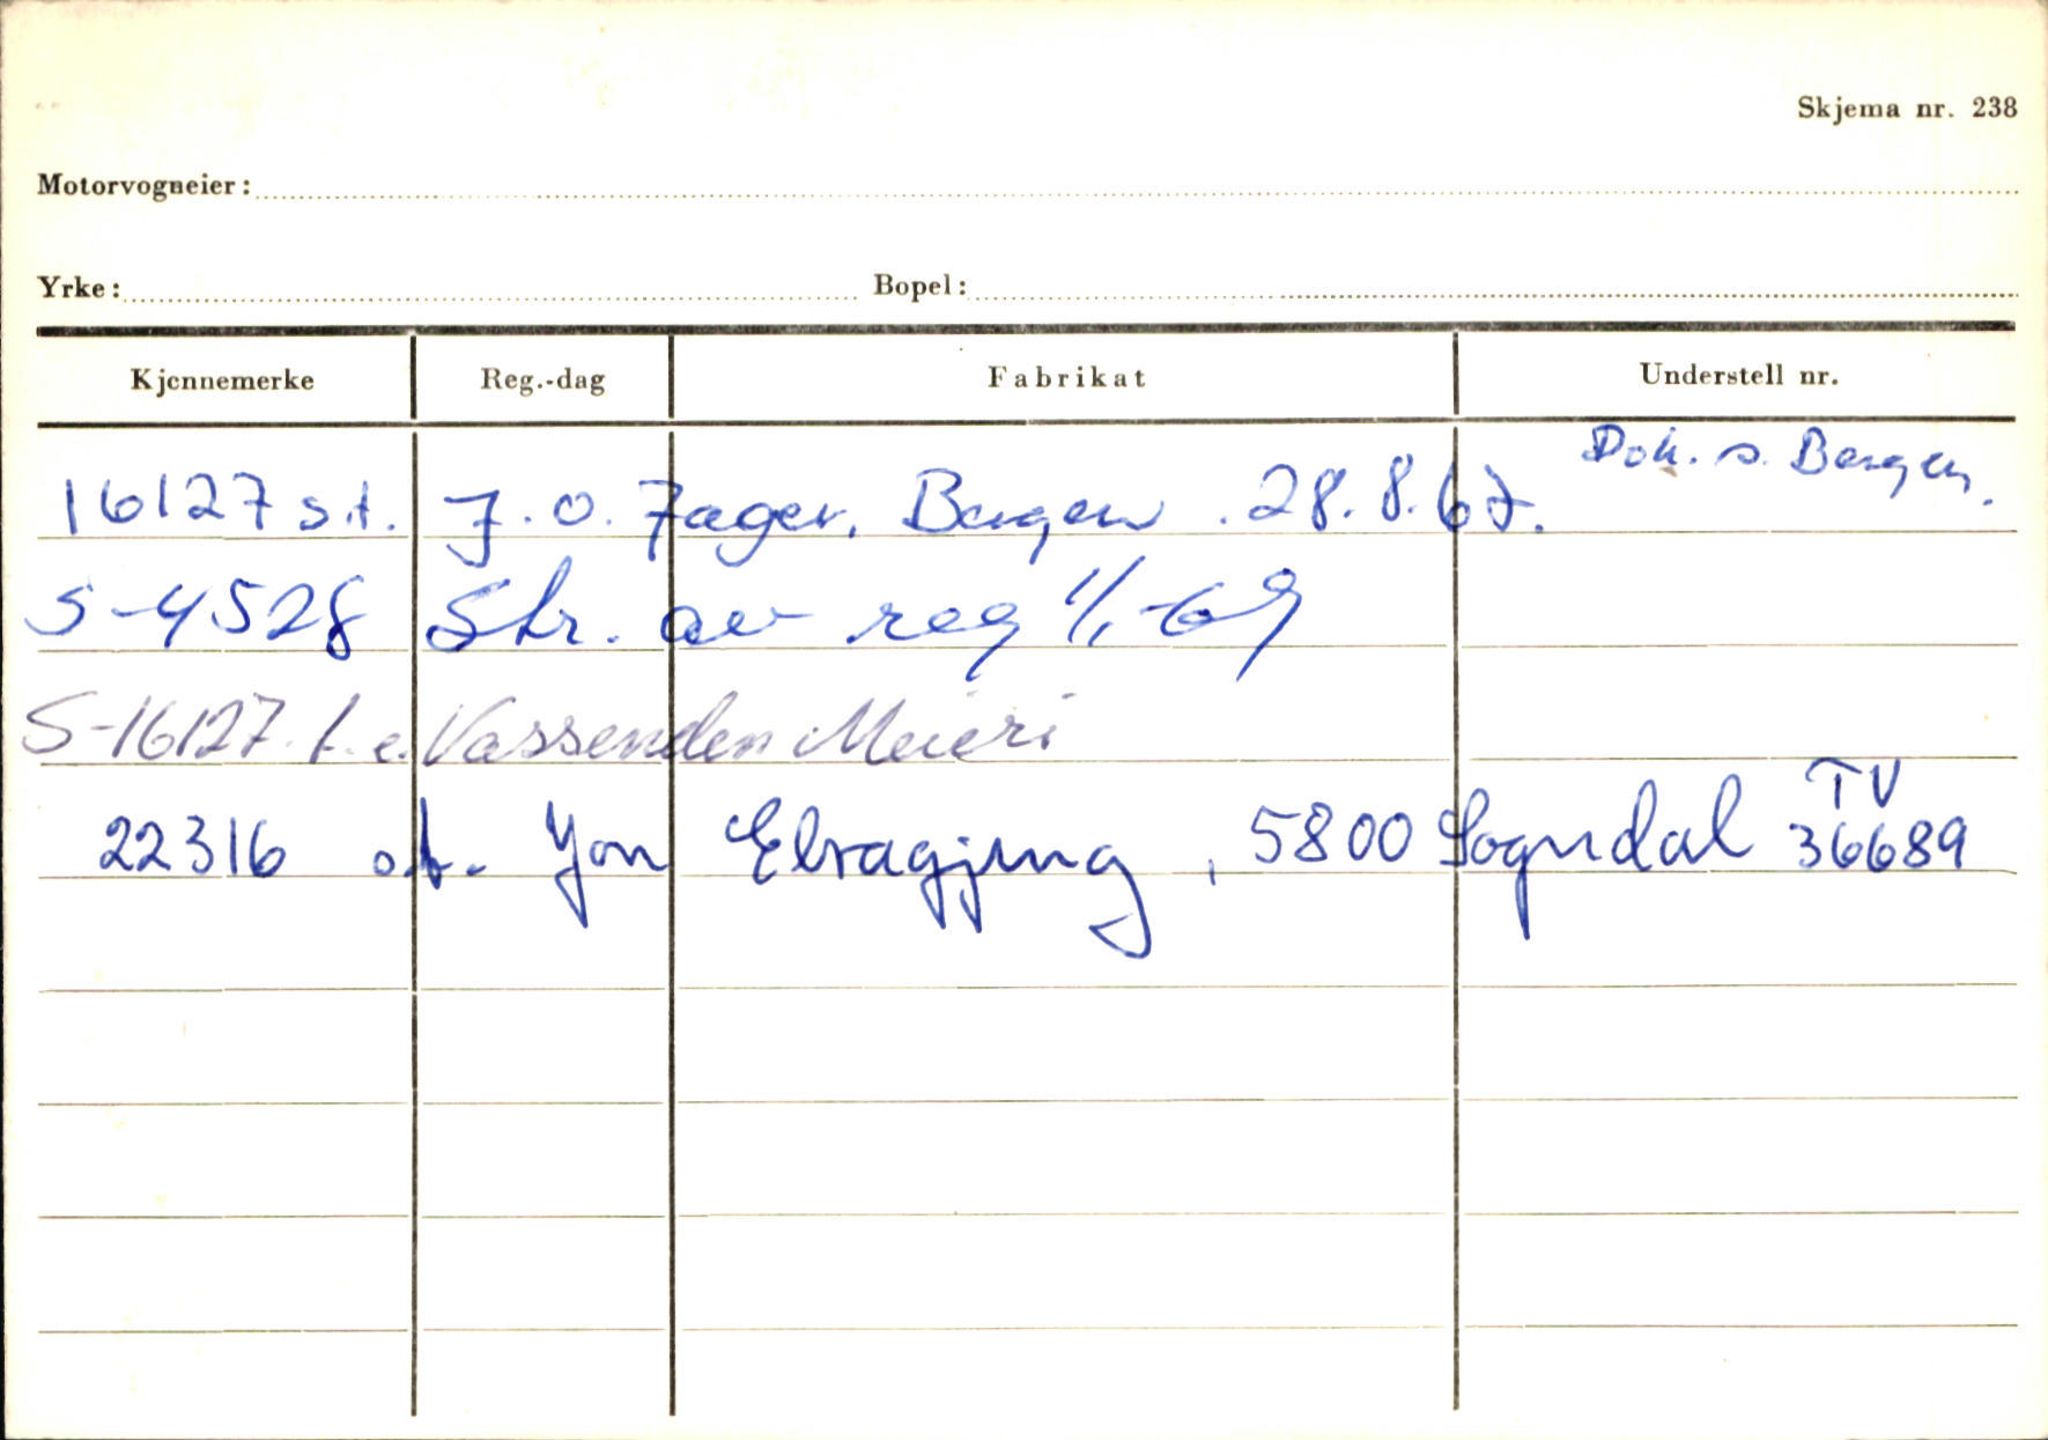 Skjema nr. 238
Motorvogneier:
Yrke: Bopel:
Kjennemerke Reg.-dag Fabrikat Understell nr.
Dok. s. Bergen.
16127 s.t. J. O. Jager, Bergen. 28.8.67.
S-4528 Str. av reg 1/1-69
S-16127. t.e. Vassenden Meieri
TV
22316 o.t. Jon Elvagjeng, 5800 Sogndal 36689